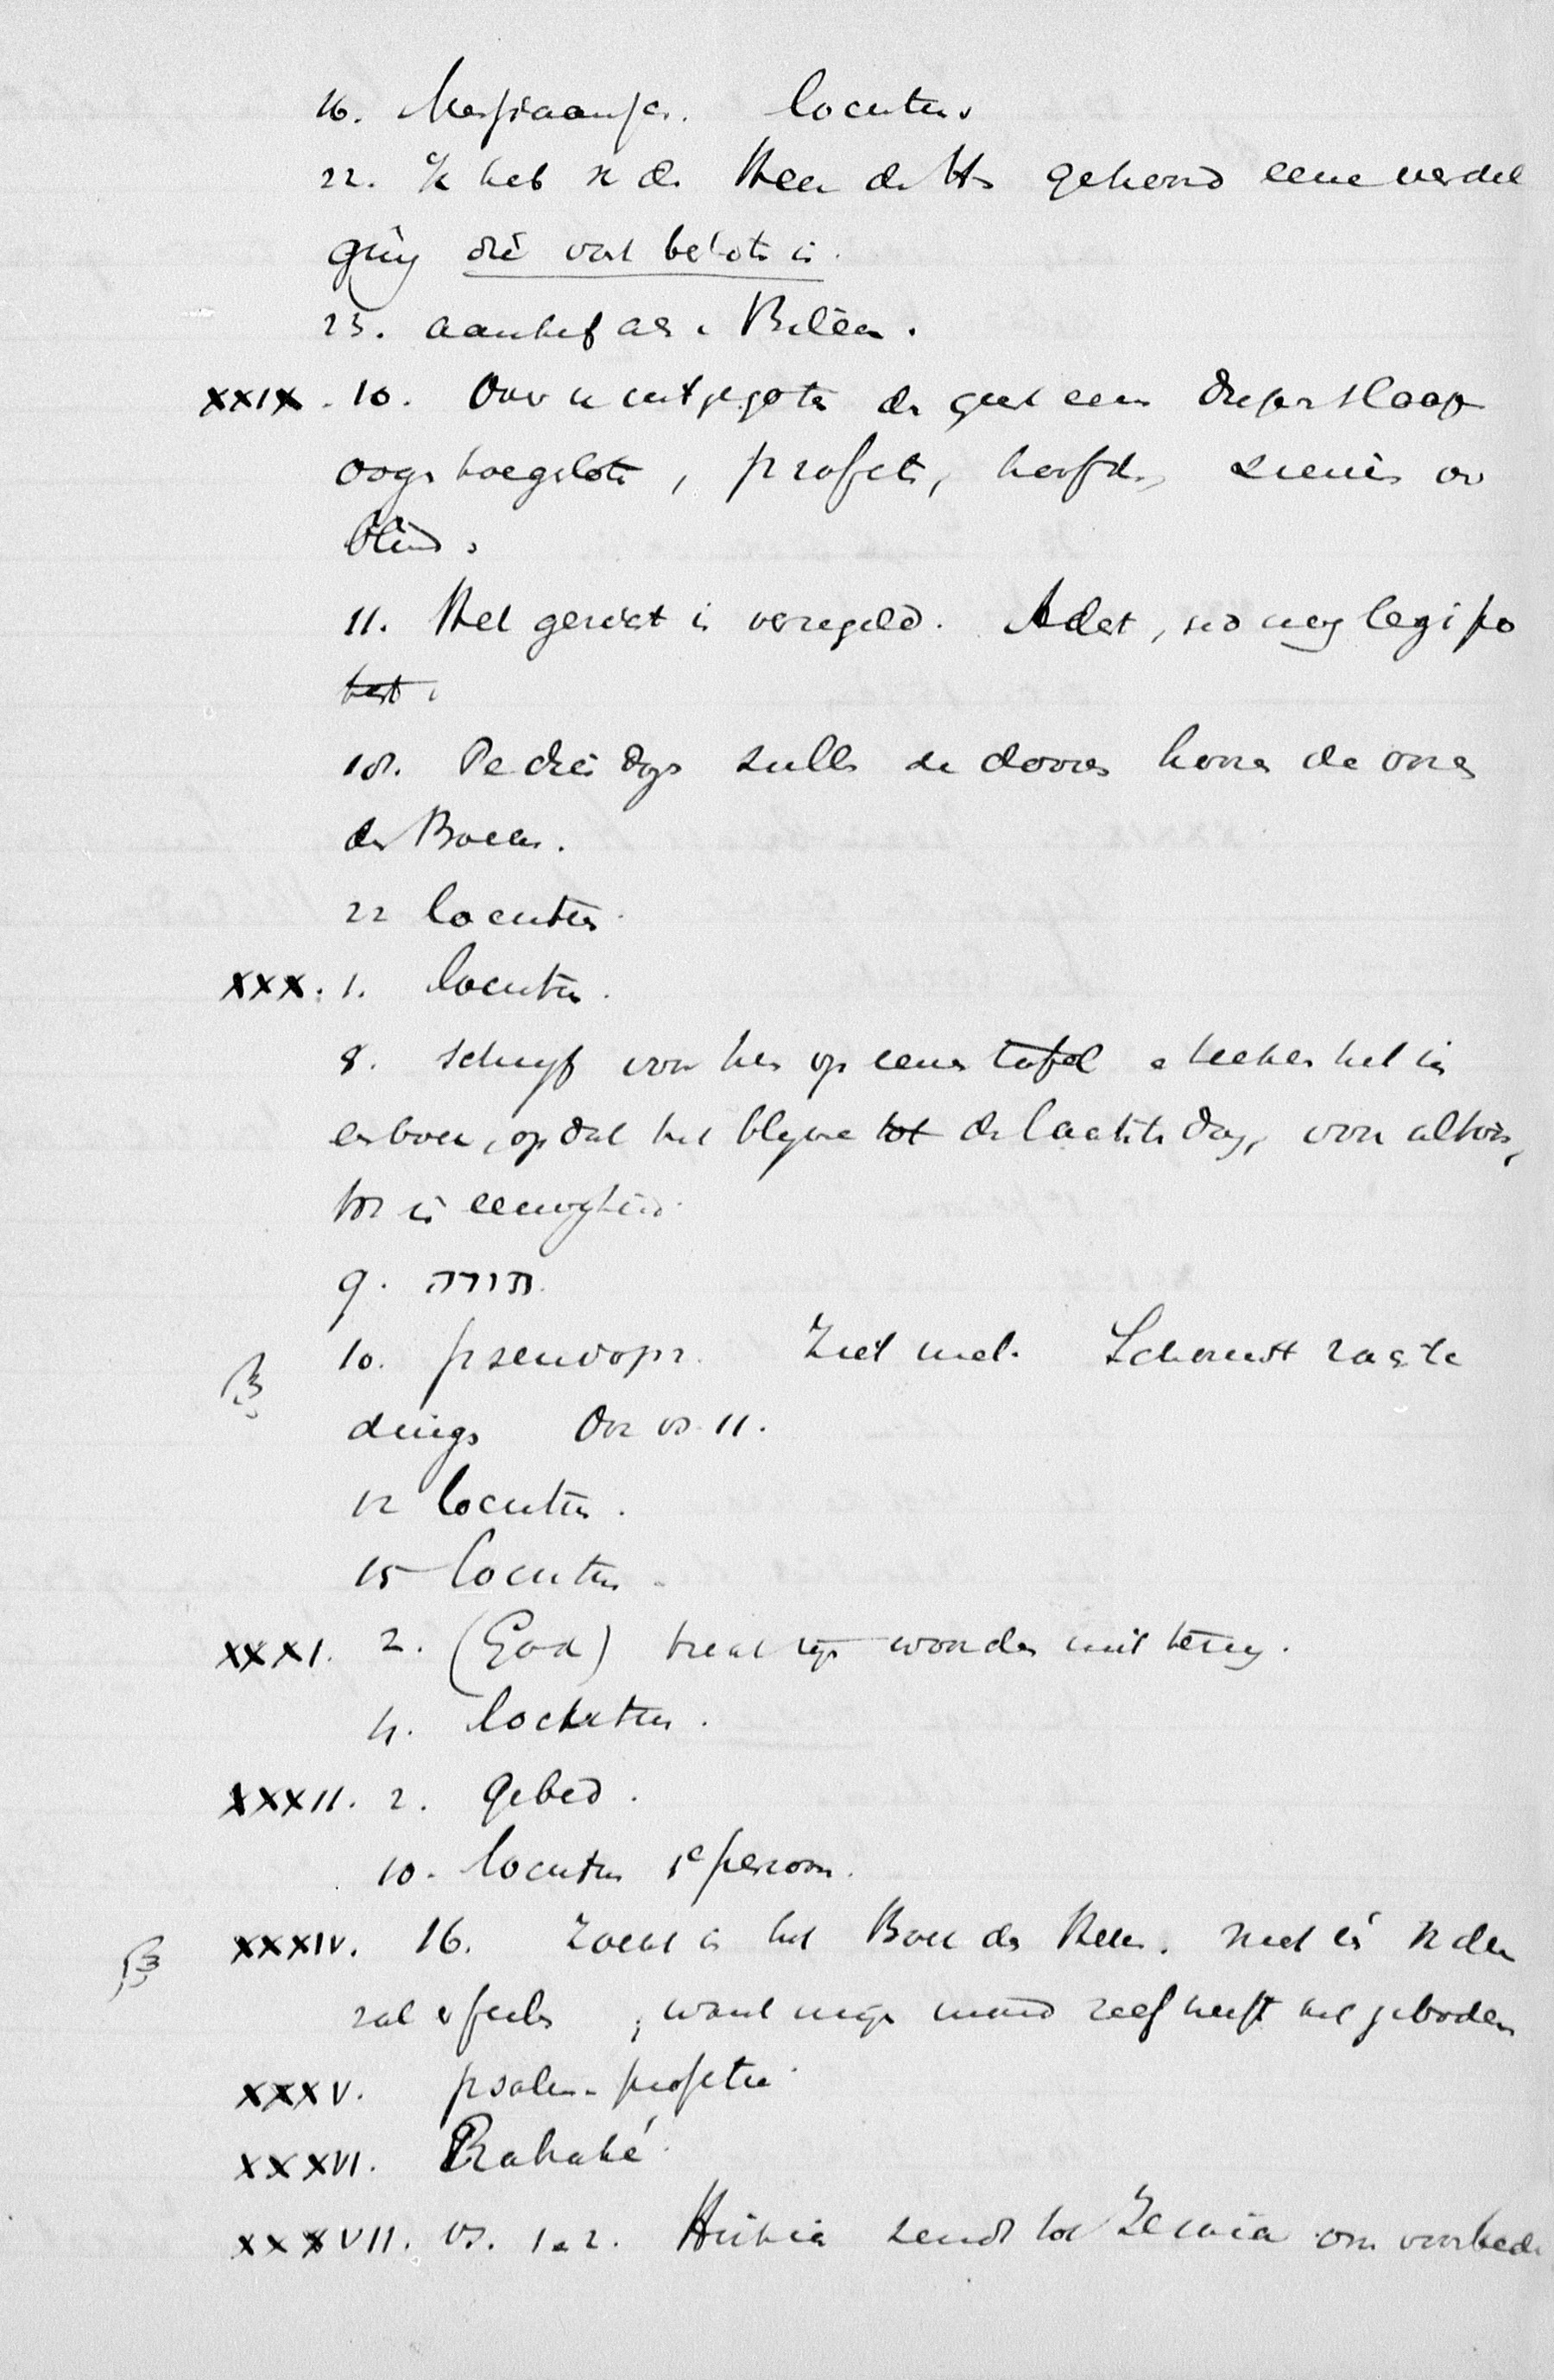 16. Messiaansch. locutus
22. Ik heb v. d. Heer d. Hh gehoord eene verdel
ging die vast besloten is.
23. aanhef als i Bileam.
XXIX. 10. Over u uitgegoten de geest eens diepen slaap
oogen toegesloten, profeten, hoofden, zieners
blind.
11. Het gezicht is verzegeld. Adest, sed neq legi po
test.
18. Te dien dage zullen de dooven hooren de woorden
des Boeks.
22 locutus.
XXX. 1. locutus.
8. schryf voor hen op eene tafel e teeken het in
een boek, opdat het blyve tot de laatste dag, voor altoos,
tot in eeuwigheid.
9. תורה.
10. pseudopr. Ziet niet. Schouwt zachte
dingen Ook vs. 11.
12 locutus.
15 locutus.
XXXI. 2. (God) trekt zyn woorden niet terug.
4. locutus.
XXXII. 2. gebed.
10. locutus 1e persoon.
XXXIV. 16. Zoekt in het Boek des Heeren. niet één v. den
zal er feilen, want mijn mond zelf heeft het geboden
XXXV. psalm-profetie.
XXXVI. Rabsaké.
XXXVII. vs. 1.2. Hiskia zendt tot Jesaia om voorbede